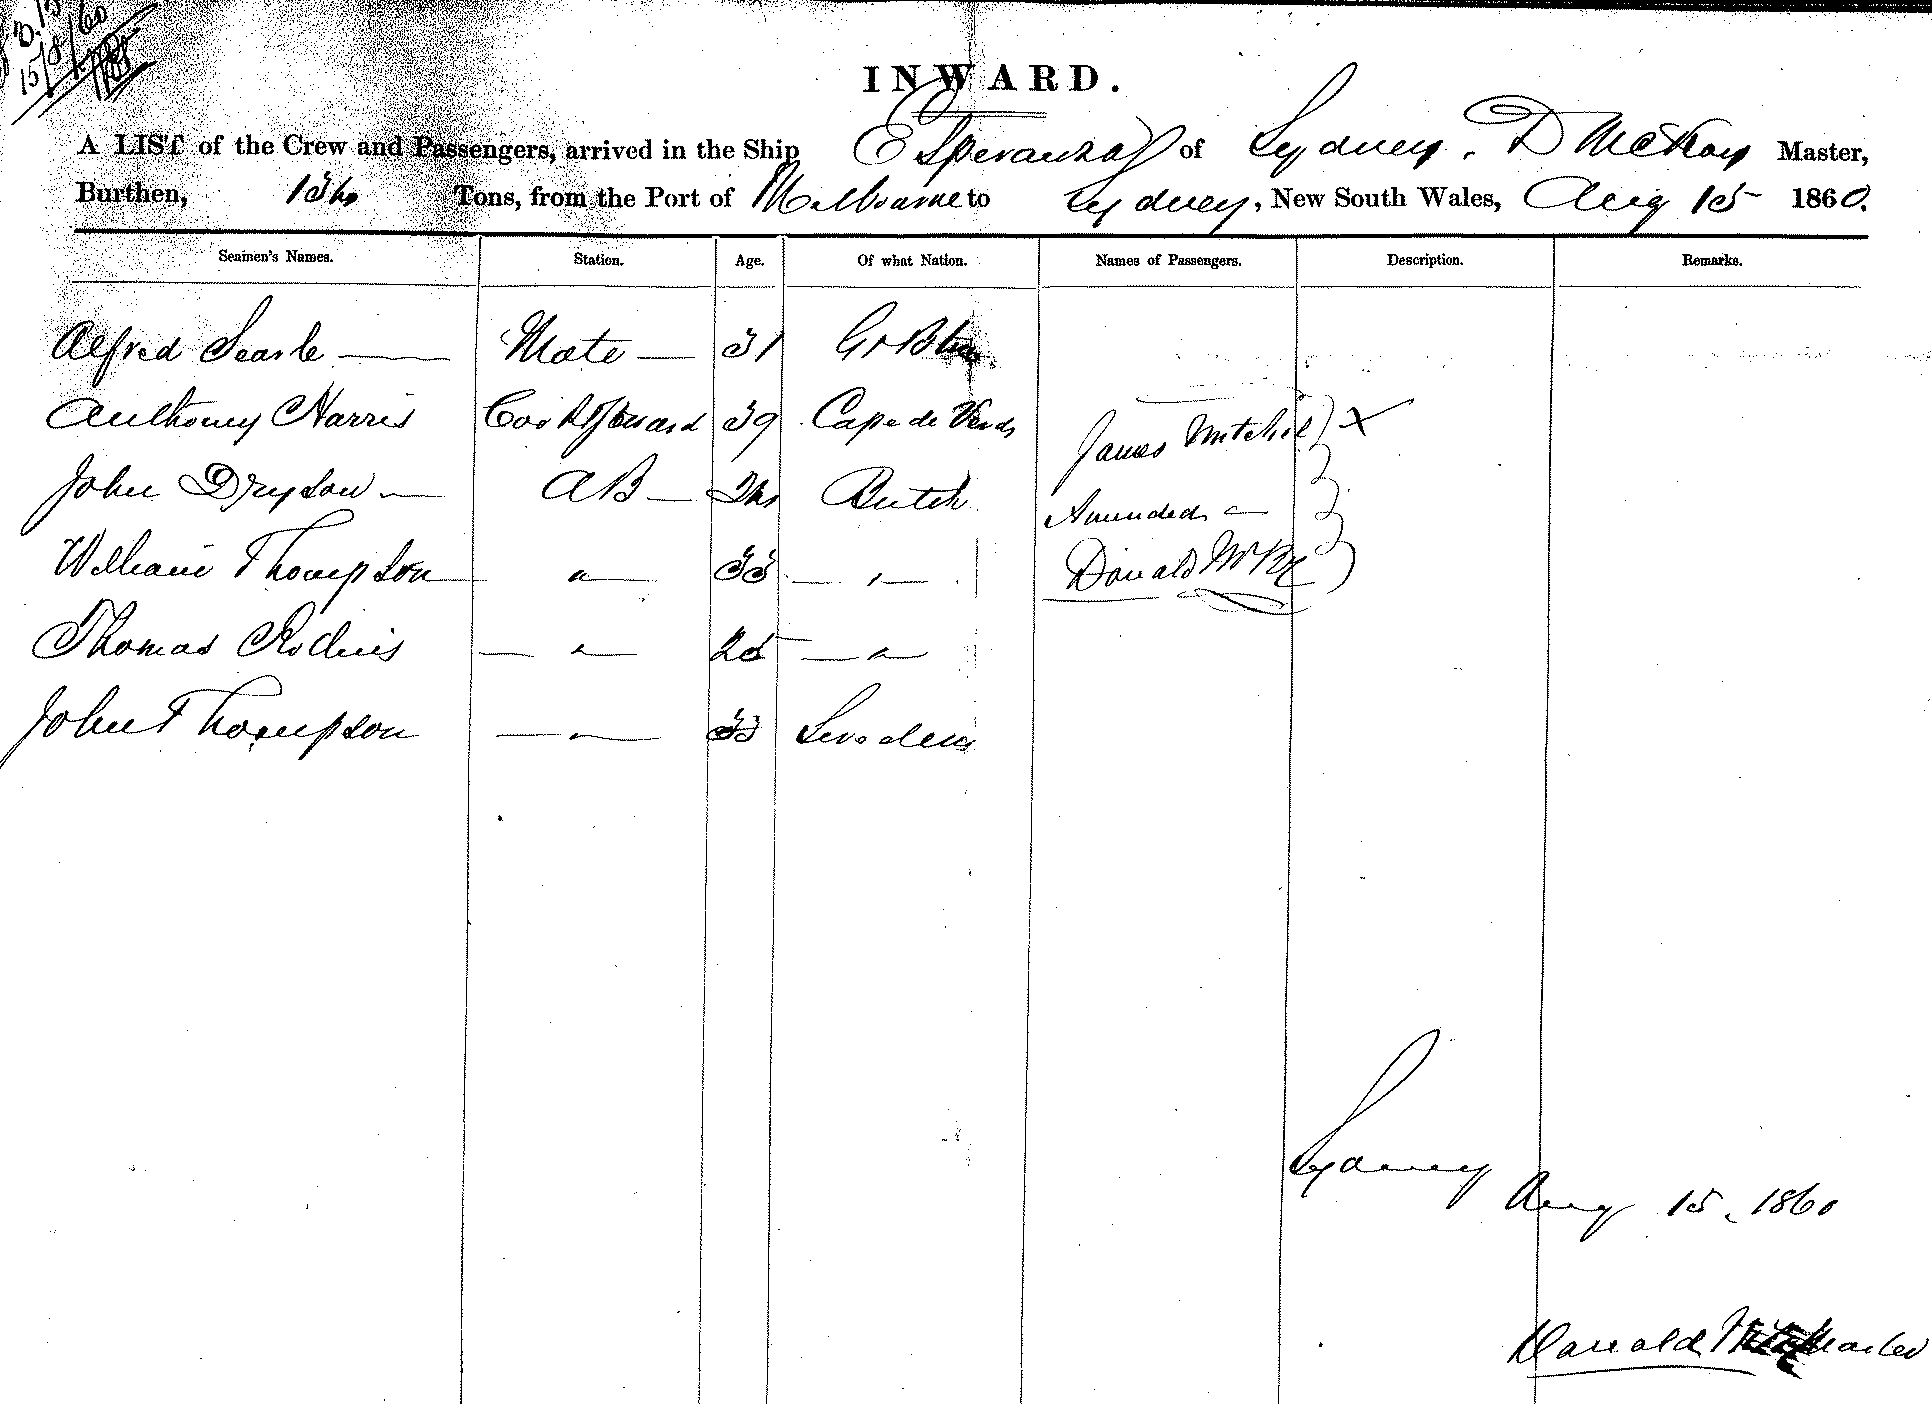 15/8/60
INWARD.
A LIST of the Crew and Passengers, arrived in the Ship Esperanza of Sydney. D McKay Master,
Burthen, Tons, from the Port of Melbourne to Sydney, New South Wales, Aug 15 1860.
Seamen's Names. Station. Age. Of what Nation. Names of Passengers. Description. Remarks.
Alfred Searle — Mate — 31 Gt Btn
Anthony Harris Cook & Steward 39 Cape de Verds
James Mitchel X
John Dryson — AB — Dutch
Amended —
William Thompson — " — 33 — " —
Donald McKy
Thomas — " — 25 — " —
John Thompson — " — 33 Sweden
Sydney
Aug 15. 1860
Donald Master